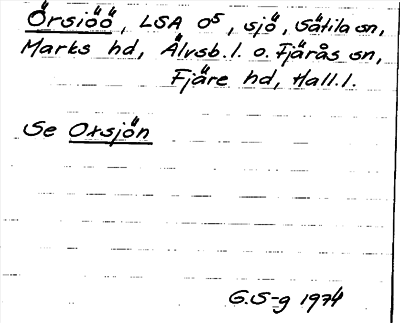 Örsiöö, LSA o⁵, sjö, Sätila sn,
Marks hd, Älvsb.l. o. Fjärås sn,
Fjäre hd, Hall.l.
Se Oxsjön
G.S-g 1974